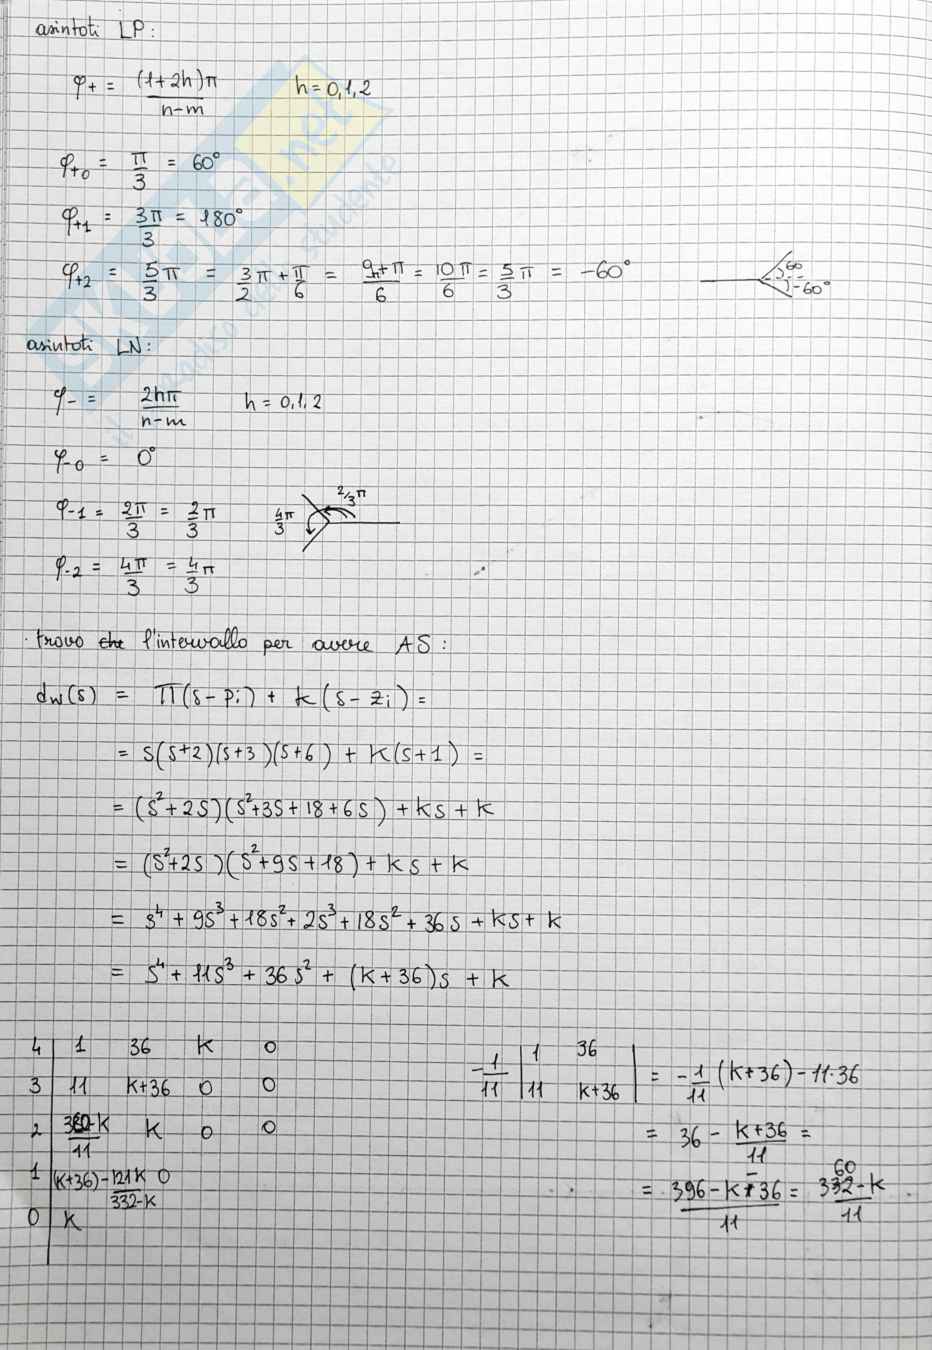 asintoti LP:
φ+ = (1+2h)π / n-m    h = 0,1,2
φ+0 = π/3 = 60°
φ+1 = 3π/3 = 180°
φ+2 = 5/3 π = 3/2 π + π/6 = 9π+π/6 = 10π/6 = 5/3 π = -60°
60
-60°
asintoti LN:
φ- = 2hπ / n-m    h = 0,1,2
φ-0 = 0°
φ-1 = 2π/3 = 2/3 π
4/3 π    2/3 π
φ-2 = 4π/3 = 4/3 π
· trovo che l'intervallo per avere AS:
dw(s) = π(s-pi) + k(s-zi) =
= s(s+2)(s+3)(s+6) + K(s+1) =
= (s²+2s)(s²+3s+18+6s) + ks + k
= (s²+2s)(s²+9s+18) + ks + k
= s⁴ + 9s³ + 18s² + 2s³ + 18s² + 36s + ks + k
= s⁴ + 11s³ + 36s² + (k+36)s + k
4 | 1    36    K    0
3 | 11    k+36    0    0
2 | 360-k/11    K    0    0
1 | (k+36) - 121k/332-k    0
0 | K
-1/11 | 1    36 |
| 11    k+36 | = -1/11 (k+36) - 11·36
= 36 - k+36/11 =
= 396-k-36/11 = 332-k/11
60
SKUOLA.net
il paradiso dello studente